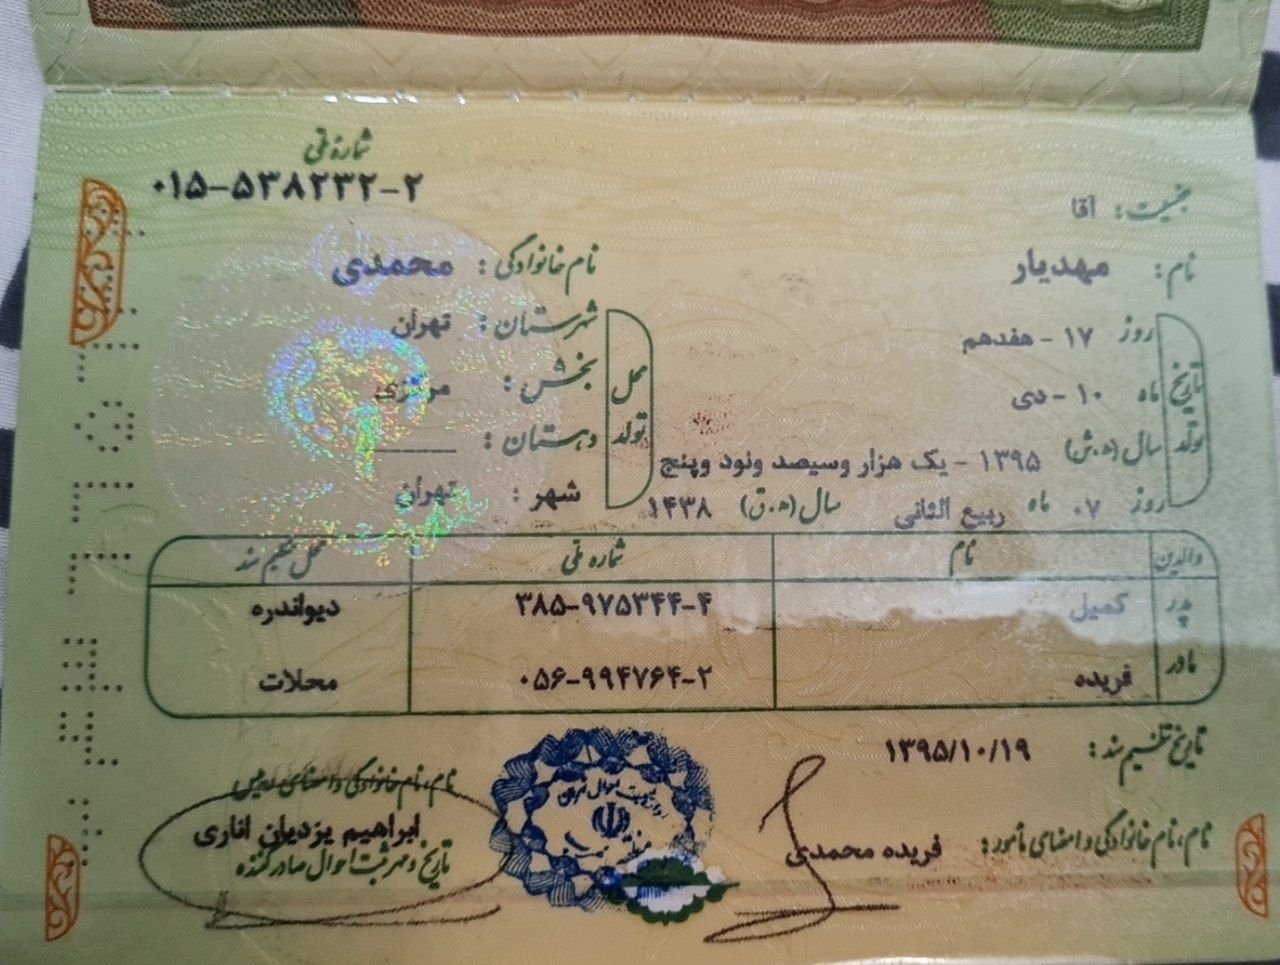 شماره ملی
۰۱۵-۵۳۸۲۳۲-۲
جنسیت: آقا
نام: مهدیار
نام خانوادگی: محمدی
تاریخ تولد
روز ۱۷ - هفدهم
ماه ۱۰ - دی
سال (ه.ش) ۱۳۹۵ - یک هزار وسیصد ونود وپنج
روز ۰۷ ماه ربیع الثانی سال (ه.ق) ۱۴۳۸
محل تولد
شهرستان: تهران
بخش: مرکزی
دهستان:
شهر: تهران
والدین نام شماره ملی محل تنظیم سند
پدر کمیل ۳۸۵-۹۷۵۳۴۴-۴ دیواندره
مادر فریده ۰۵۶-۹۹۴۷۶۴-۲ محلات
تاریخ تنظیم سند: ۱۳۹۵/۱۰/۱۹
نام، نام خانوادگی و امضای مأمور: فریده محمدی
نام، نام خانوادگی و امضای رئیس
ابراهیم یزدیان اناری
تاریخ و مهر ثبت احوال صادرکننده